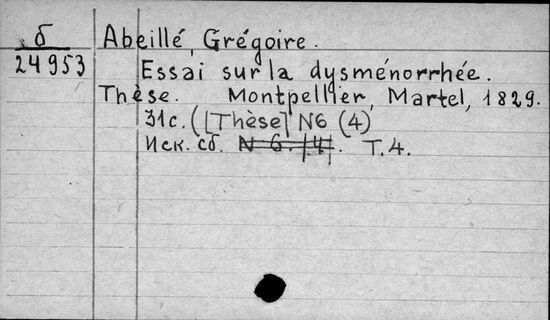 б
24953
Abeillé, Grégoire.
Essai sur la dysménorrhée.
Thèse. Montpellier, Martel, 1829.
31с. ([Thèse] N6 (4)
Иск. сб. N 6. |4|. Т.4.